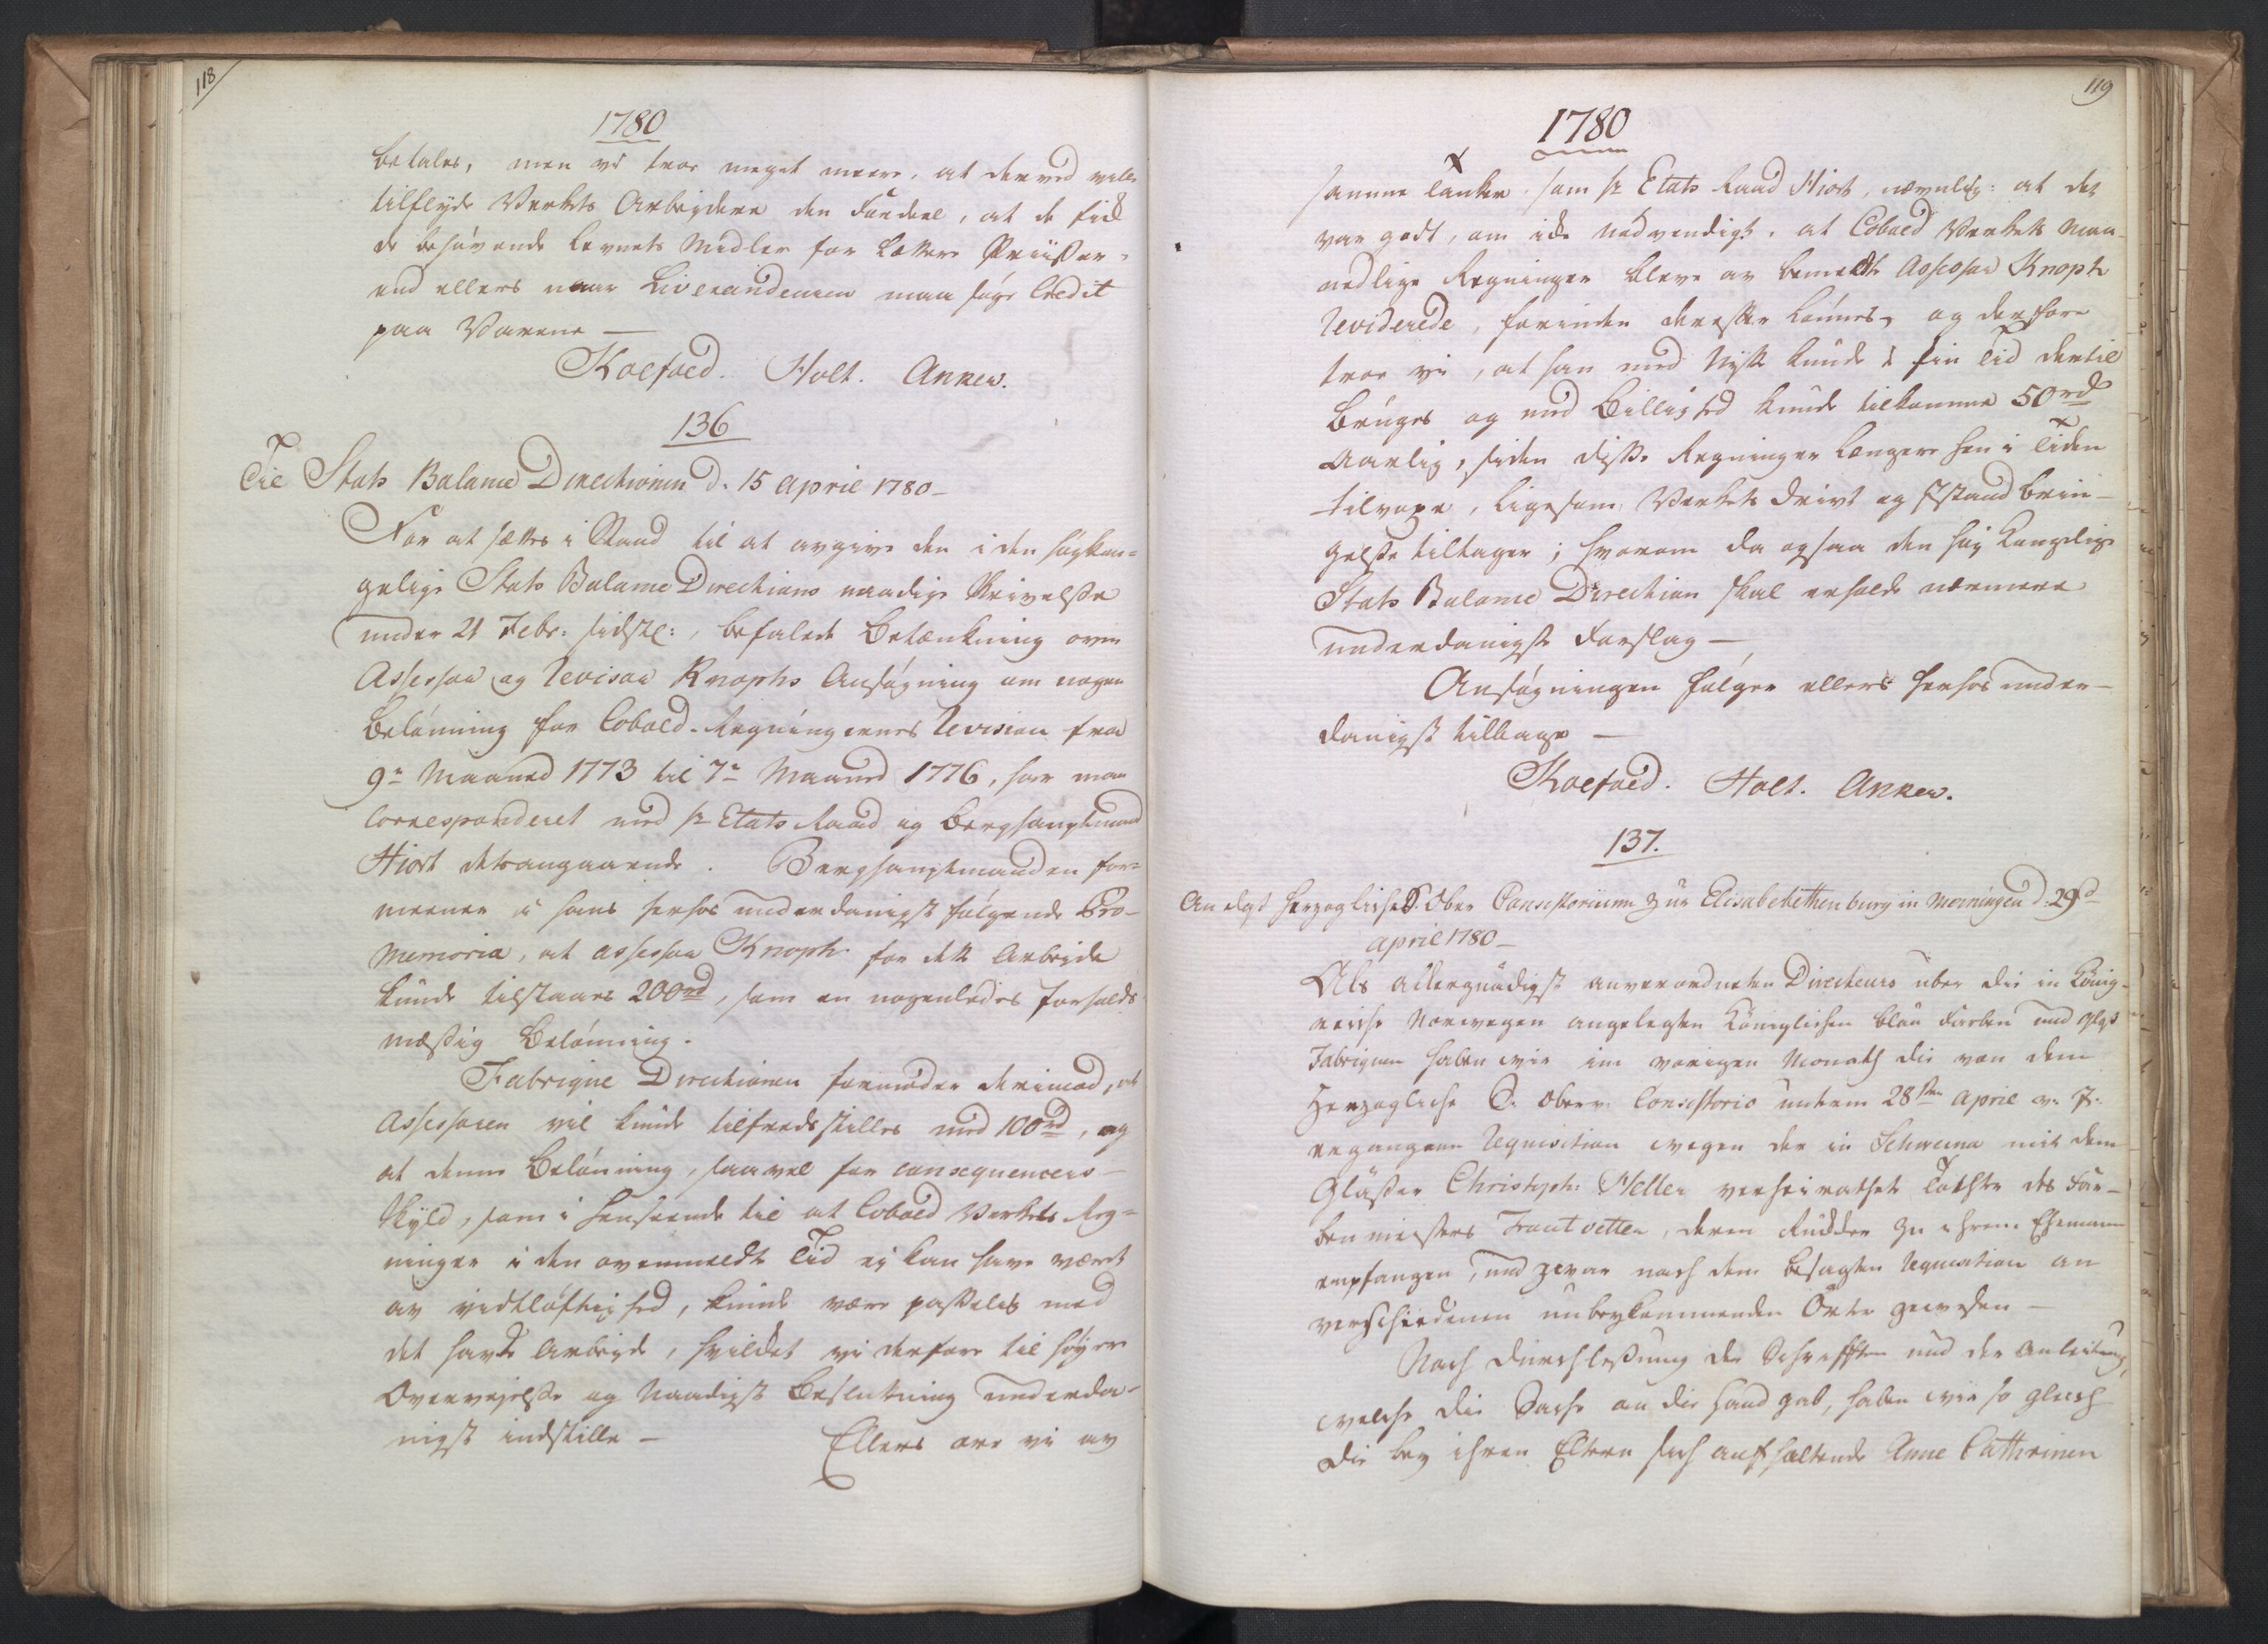 118
1780
betales, men vi troe meget meere, at derved ville
tilflyde Verkets Arbeydere den Fordeel, at de fik
de behøvende Levnets Midler for lettere Priiser,
end ellers naar Liverandeuren maa søge Credit
paa Varene —
Koefoed. Holt. Anker.
136
Til Stats Balance Directionen d. 15 April 1780 —
For at sættes i Stand til at avgive den i den høykon=
gelige Stats Balance Directions naadige Skrivelse
under 21 Febr: sidstl:, befalede Betænkning over
Assessor og Revisor Knophs Ansøgning om nogen
Belønning for Cobold-Regningernes Revision fra
9n Maaned 1773 til 7n Maaned 1776, har man
Correspenderet med Hr Etats Raad og Berghauptmand
Hiort detangaaende. Berghauptmanden for=
meener i hans herhos underdanigst følgende Pro-
Memoria, at Assessor Knoph for dette Arbeide
kunde tilstaaes 200rd, som en nogenledes forholds
mæssig Belønning.
Fabrique Directionen formoder derimod, at
Assessoren vil kunde tilfredsstilles med 100rd, og
at denne Belønning, saavel for consequencens
Skyld, som i henseende til at Cobold Verkets Reg=
ninger i den ovenmeldte Tid ej kan have været
av vidtløftighed, kunde være passelig med
det havde Arbeyde, hvilket vi derfore til høyere
Overvejelse og Naadigst Beslutning underda-
nigst indstille — Ellers ere vi av
119
1780
samme Tanker som Hr Etats Raad Hiort, nevnlig: at det
var godt, om ikke nødvendigt, at Cobold Verkets Maa-
nedlige Regninger bleve av bemeldte Assessor Knoph
Reviderede, forinden derefter lønnes, og derfore
troe vi, at han med Nytte kunde i sin Tid dertil
bruges og med Billighed kunde tilkomme 50rd
Aarlig, siden disse Regninger længere hen i Tiden
tilvoxe, ligesom Verkets Drivt og Istandbrin-
gelse tiltager; hvorom da ogsaa den høy Kongelige
Stats Balance Direction skal erholde nærmere
underdanigste Forslag —
Ansøgningen følger ellers herhos under-
danigst tilbage —
Koefoed. Holt. Anker.
137.
An Herzogliches S. Ober Consistorium zur Elisabethethenburg in Meiningen d. 29d
April 1780 —
Als allergnädigst anverordneten Directeurs über die in König-
reiche Norwegen angelegten Königlichen blau Farben und Glas
Fabriquen haben wir im vorigen Monath die von dem
Herzogliche S. Ober Consistorio unterm 28ten April v. J.
ergangene Requisition wegen der in Schweina mit dem
Gläßer Christoph: Heller verheirathet Tochter des Far-
ben meisters Trautvetter, deren zu ihrem Ehemann
empfangen, und zwar nach dem besagten Requisition an
verschiedenen unbeykommenden Orte gewesen —
Nach Durchleßung der Schrifften und der Anleitung,
welche die Sache an die Hand gab, haben wir so gleich
die bey ihren Eltern sich aufhaltende Anne Cathrinen